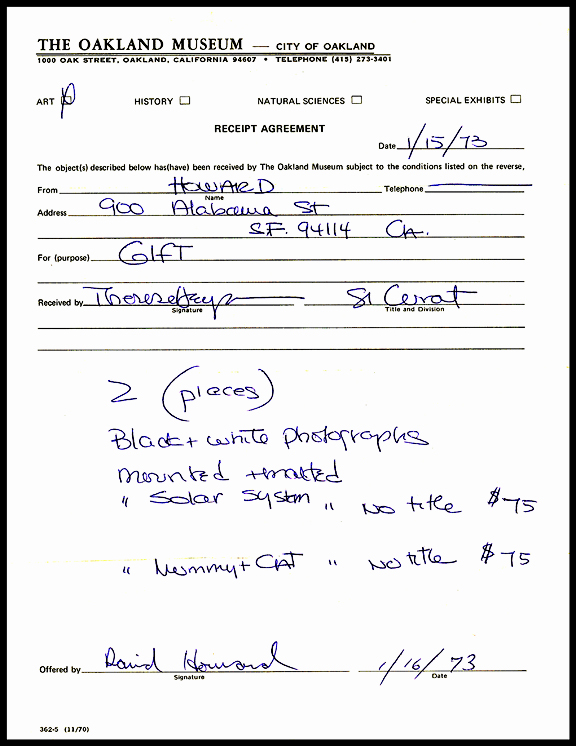 THE OAKLAND MUSEUM — CITY OF OAKLAND
1000 OAK STREET, OAKLAND, CALIFORNIA 94607 • TELEPHONE (415) 273-3401
ART HISTORY NATURAL SCIENCES SPECIAL EXHIBITS
RECEIPT AGREEMENT
Date 1/15/73
The object(s) described below has(have) been received by The Oakland Museum subject to the conditions listed on the reverse,
From HOWARD Telephone
Name
Address 900 Alabama St
S.F. 94114 CA.
For (purpose) GIFT
Received by Therese
Signature Title and Division
2 (pieces)
Black + white photographs
mounted + matted
" Solar System " NO title $75
" Mummy + CAT " NO title $75
Offered by David Howard 1/16/73
Signature Date
362-5 (11/70)